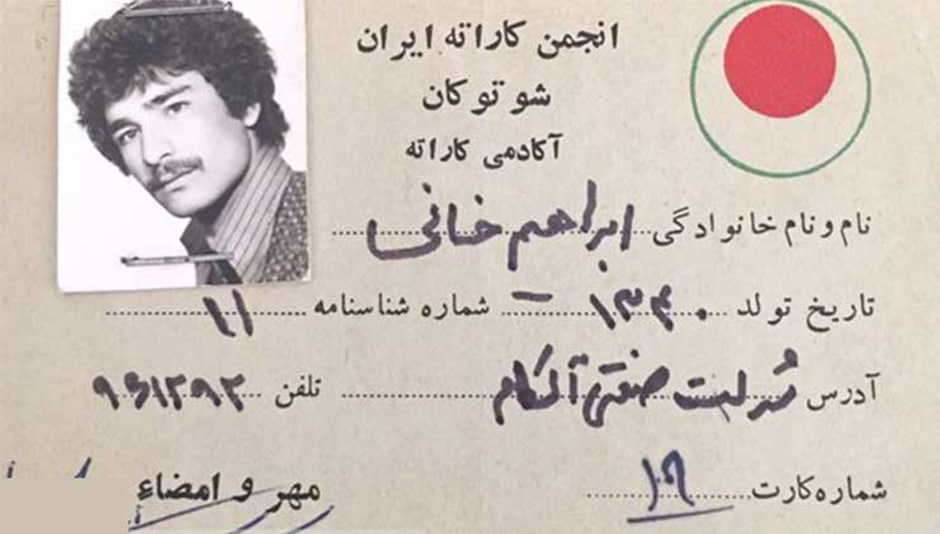 انجمن کاراته ایران
شوتوکان
آکادمی کاراته
نام و نام خانوادگی ابراهیم خانی
تاریخ تولد ۱۳۴۰ - شماره شناسنامه ۱۱
آدرس شرکت صنعتی آلکام تلفن ۹۶۱۲۹۲
شماره کارت ۱۰۹
مهر و امضاء